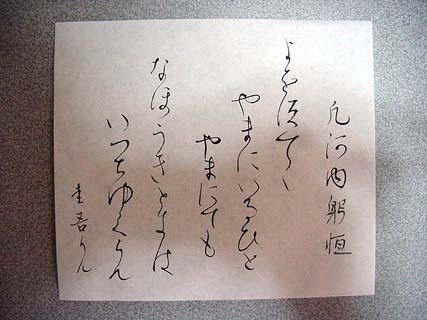 凡河内躬恒
よをすてゝ
やまにいるひと
やまにても
なほうきときは
いつちゆくらん
圭吾りん